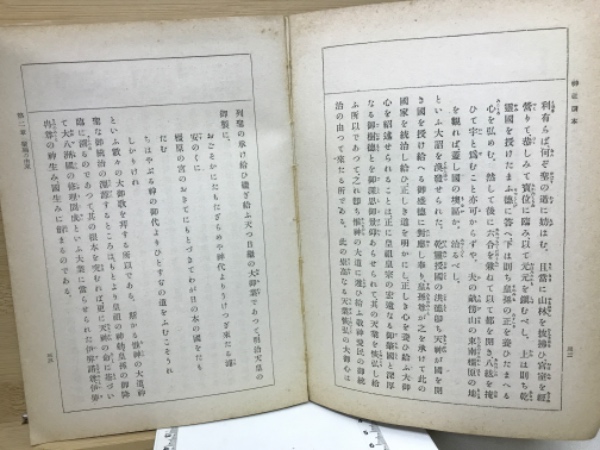 神祇讀本
利有らば、何ぞ聖の道に妨はむ。且當に山林を披拂ひ宮室を經
營りて恭みて寶位に臨み以て元元を鎭むべし。上は則ち乾
靈國を授けたまふ德に答へ下は則ち皇孫の正を養ひたまへる
心を弘めむ。然して後に六合を兼ねて以て都を開き八紘を掩
ひて宇と爲むこと亦可からずや。夫の畝傍山の東南橿原の地
を觀れば蓋し國の墺區か、治るべし。
といふ大詔を渙發せられた。乾靈授國の洪德卽ち天神が國を開
き國を授け給へる御盛德に對應し奉り皇孫尊が之を承けて此の
國家を統治し給ひ正しき道を明かにし正しき心を養ひ給ふ大御
心を紹述せられることは正に皇祖皇宗の宏遠なる御肇國と深厚
なる御樹德とを御護思御景仰あらせられて其の天業を恢弘し給
ふ所以であつて之れ卽ち惟神の大道に遵ひ給ふ敬神愛民の御統
治の由つて來たる所である。此の崇高なる天業恢弘の大御心は
四三
列聖の承け給ひ繼ぎ給ふ天つ日繼の大御業であつて明治天皇の
御製に、
おごそかにたもたざらめや神代よりうけつぎ來たる浦
安のくに
橿原の宮のおきてにもとづきてわが日の本の國をたも
たむ
ちはやぶる神の御代よりひとすぢの道をふむこそうれ
しかりけれ
といふ數々の大御歌を拜する所以である。斯かる惟神の大道神
聖な御統治の淵源するところは、もとより皇祖の神勅皇孫の御降
臨に溯るのであつて、其の根本を究むれば更に天神の命に基づい
て大八洲國の修理固成といふ大業に當らせられた伊邪諾尊伊弉
冉尊の神生み國生みに始まるのである。
第二章
四四